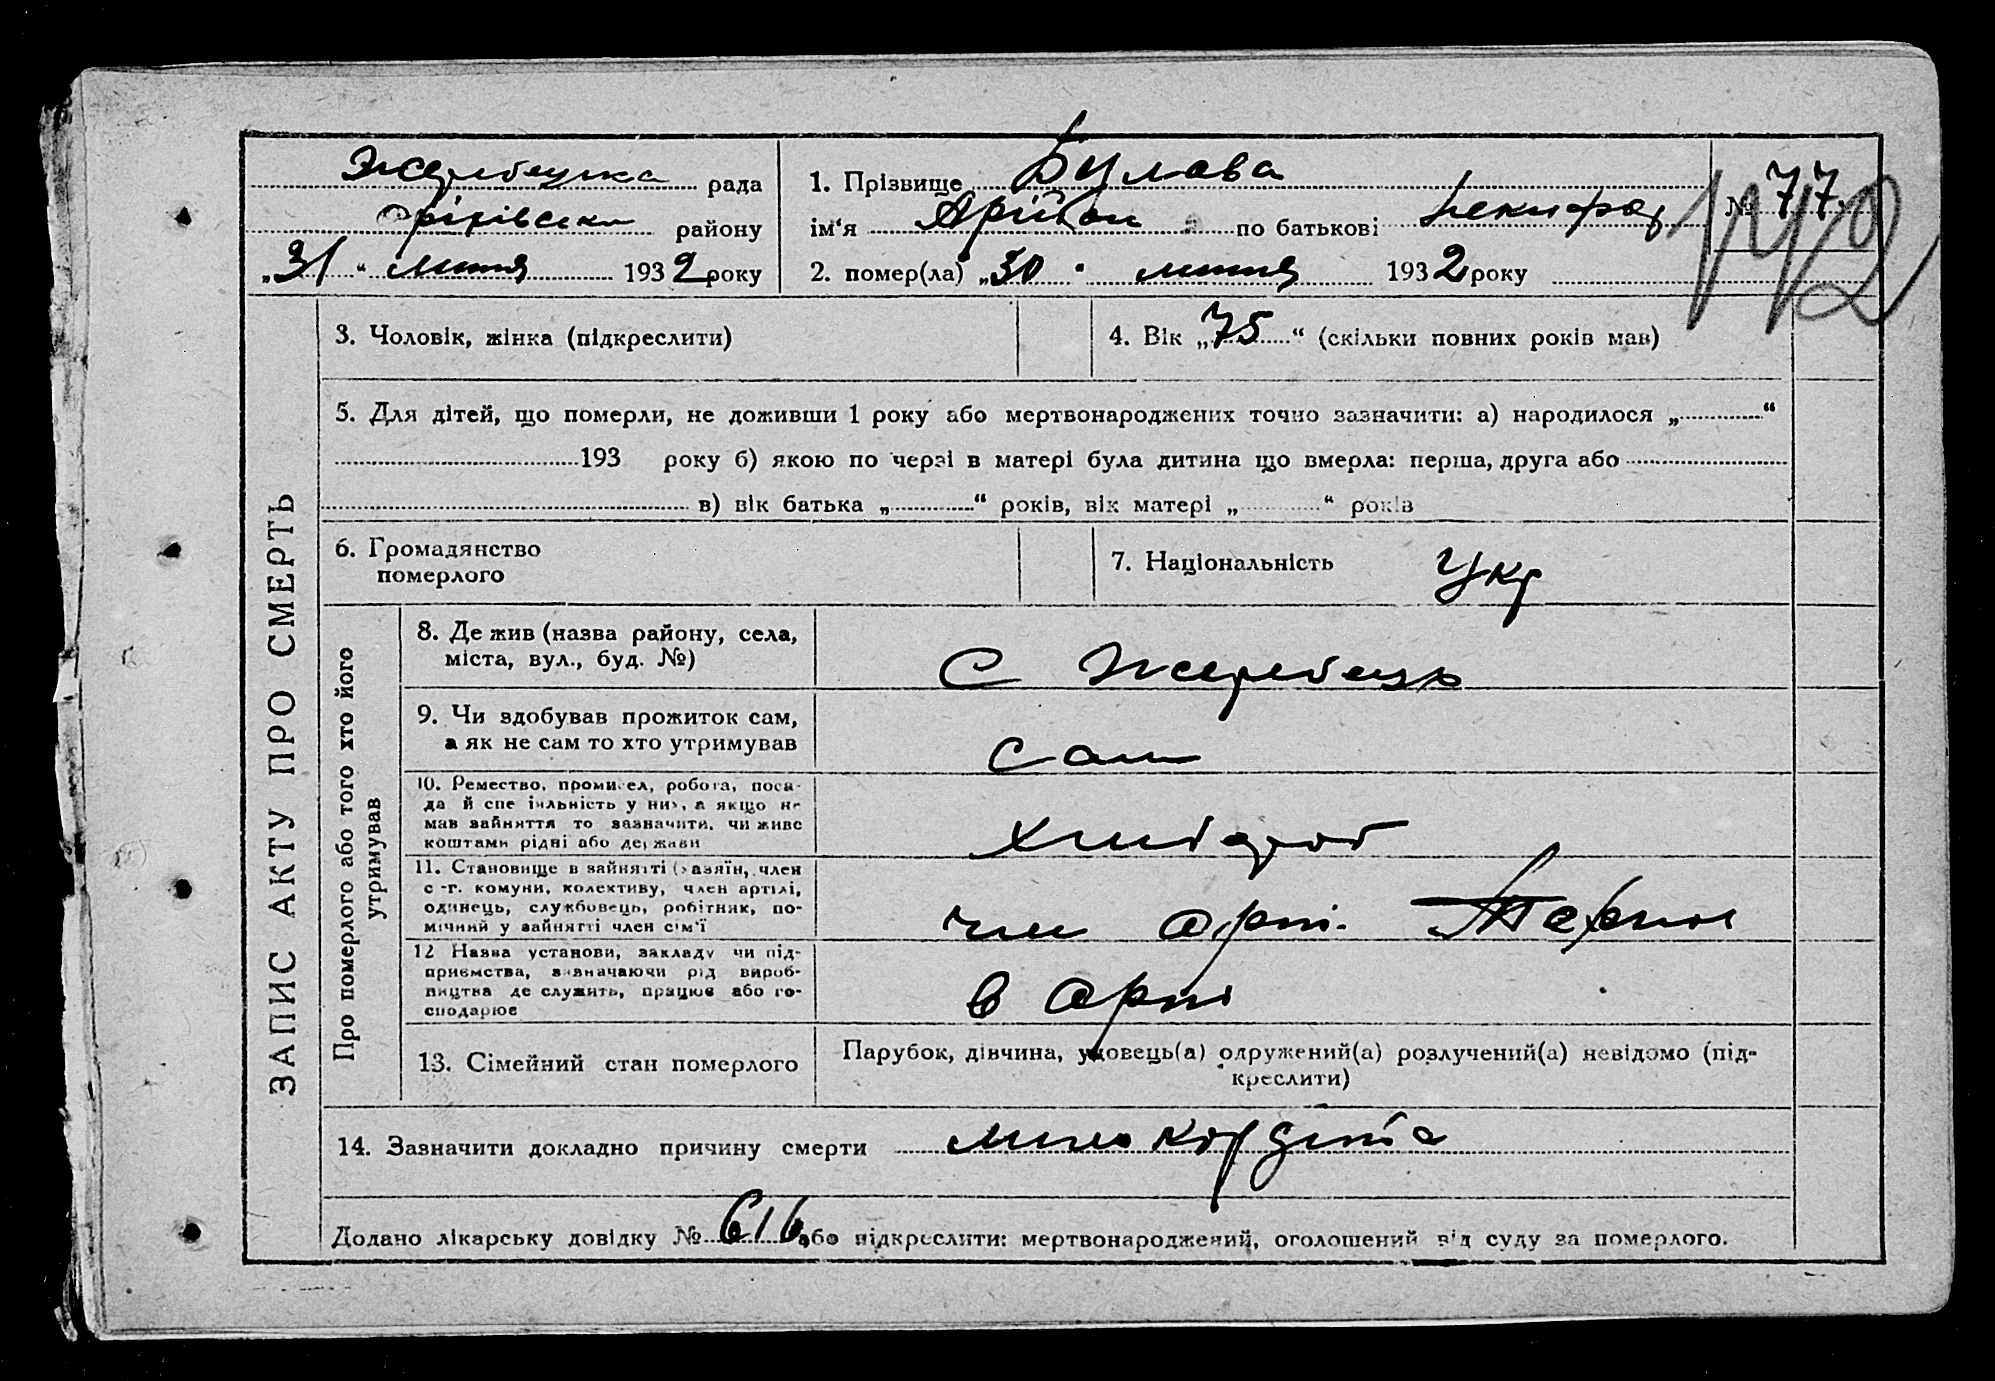 Жеребецька рада
Оріхівськи району
„31“ липня 1932 року
1. Прізвище Булава
ім'я по батькові Некифор
2. помер(ла) „30“ липня 1932 року
№ 77.
142
ЗАПИС АКТУ ПРО СМЕРТЬ
3. Чоловік, жінка (підкреслити)
4. Вік „75“ (скільки повних років мав)
5. Для дітей, що померли, не доживши 1 року або мертвонароджених точно зазначити: а) народилося „ “
193 року б) якою по черзі в матері була дитина що вмерла: перша, друга або
в) вік батька „ “ років, вік матері „ “ років
6. Громадянство
померлого
7. Національність Укр
Про померлого або того хто його
утримував
8. Де жив (назва району, села,
міста, вул., буд. №)
С Жеребець
9. Чи здобував прожиток сам,
а як не сам то хто утримував
сам
10. Ремество, промисел, робота, поса-
да й спеціяльність у них, а якщо не
мав зайняття то зазначити, чи живе
коштами рідні або держави
хлібороб
11. Становище в зайнятті (хазяїн, член
с.-г. комуни, колективу, член артілі,
одинець, службовець, робітник, по-
мічний у зайнятті член сім'ї
член арті.
12 Назва установи, закладу чи під-
приємства, визначаючи рід вироб-
ництва де служить, працює або го-
сподарює
в арті
13. Сімейний стан померлого
Парубок, дівчина, удовець(а) одружений(а) розлучений(а) невідомо (під-
креслити)
14. Зазначити докладно причину смерти
Додано лікарську довідку № 616 або підкреслити: мертвонароджений, оголошений від суду за померлого.